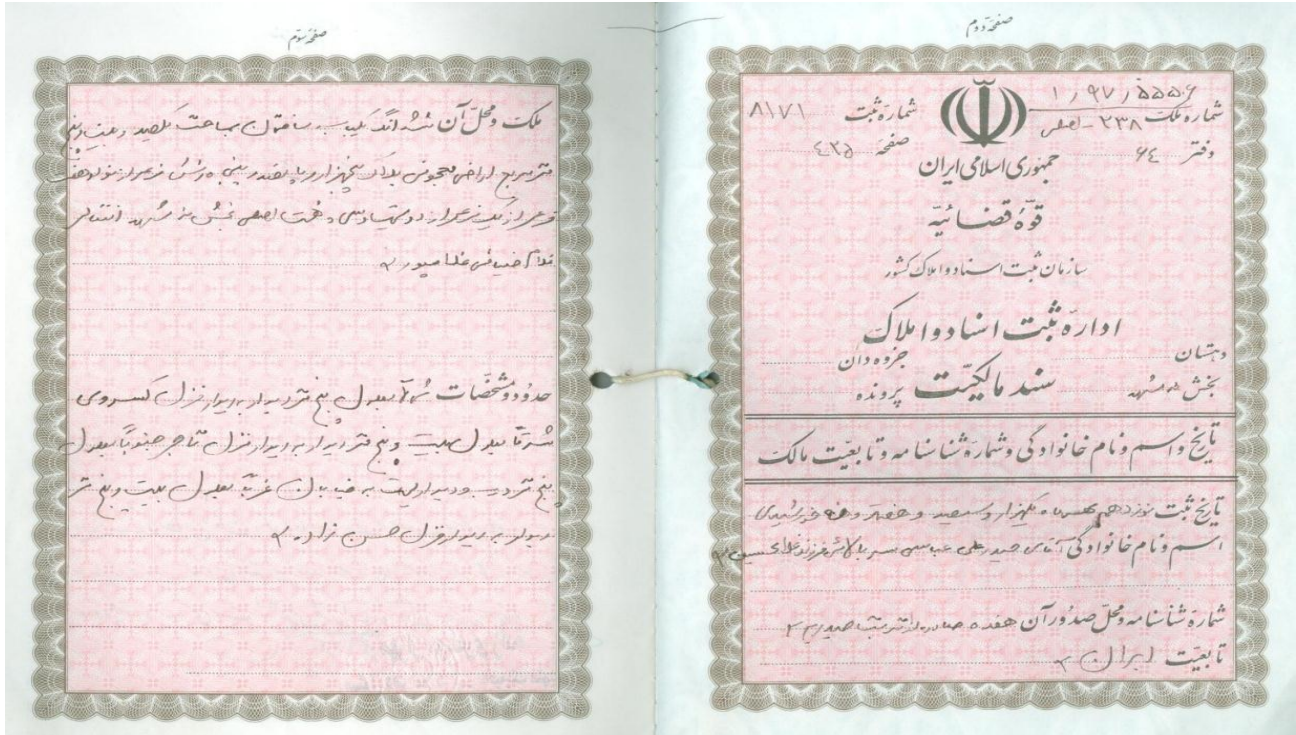 صفحهٔ دوم
شمارهٔ ملک ۵۵۵۶ / ۹۷ / ۱
۲۳۸ - اصلی
شمارهٔ ثبت ۸۱۷۱
دفتر ۶۴ صفحهٔ ۴۳۵
جمهوری اسلامی ایران
قوّهٔ قضائیّه
سازمان ثبت اسناد و املاک کشور
ادارهٔ ثبت اسناد و املاک
دهستان جزوه‌دان
بخش ۵ مشهد سند مالکیّت پرونده
تاریخ و اسم و نام خانوادگی و شمارهٔ شناسنامه و تابعیّت مالک
تاریخ ثبت نوزدهم یکهزار و سیصد و هفتاد و خورشیدی
اسم و نام خانوادگی آقای حیدرعلی عباسی فرزند غلامحسین
شمارهٔ شناسنامه و محلّ صدور آن هفده صادره از تربت حیدریه
تابعیّت ایران
صفحهٔ سوّم
ملک و محلّ آن ششدانگ یکباب ساختمان بمساحت یکصد و بیست و پنج
متر مربع اراضی پلاک پنجهزار و پانصد و پنجاه و شش فرعی از نود و هفت
فرعی از یک فرعی از دویست و سی و هشت اصلی بخش پنج مشهد انتقالی
حدود و مشخّصات شمالاً بطول پنج متر دیوار بدیوار منزل خسروی
شرقاً بطول بیست و پنج متر دیوار به دیوار منزل تاجر جنوباً بطول
پنج متر درب و دیواریست به خیابان غرباً بطول بیست و پنج متر
دیوار به دیوار منزل حسن زاده